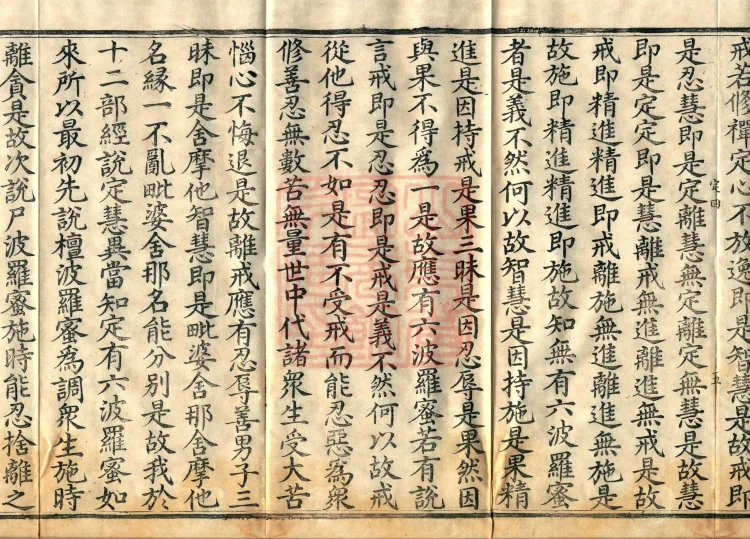 戒若修禪定心不放逸即是智慧是故戒即
是忍慧即是定離慧無定離定無慧是故慧
即是定定即是慧離戒無進離進無戒是故
戒即精進精進即戒離施無進離進無施是
故施即精進精進即施故知無有六波羅蜜
者是義不然何以故智慧是因持施是果精
進是因持戒是果三昧是因忍辱是果然因
與果不得為一是故應有六波羅蜜若有說
言戒即是忍忍即是戒是義不然何以故戒
從他得忍不如是有不受戒而能忍惡為衆
修善忍無數苦無量世中代諸衆生受大苦
惱心不悔退是故離戒應有忍辱善男子三
昧即是舍摩他智慧即是毗婆舍那舍摩他
名緣一不亂毗婆舍那名能分別是故我於
十二部經說定慧異當知定有六波羅蜜如
來所以最初先說檀波羅蜜為調衆生施時
離貪是故次說尸波羅蜜施時能忍捨離之